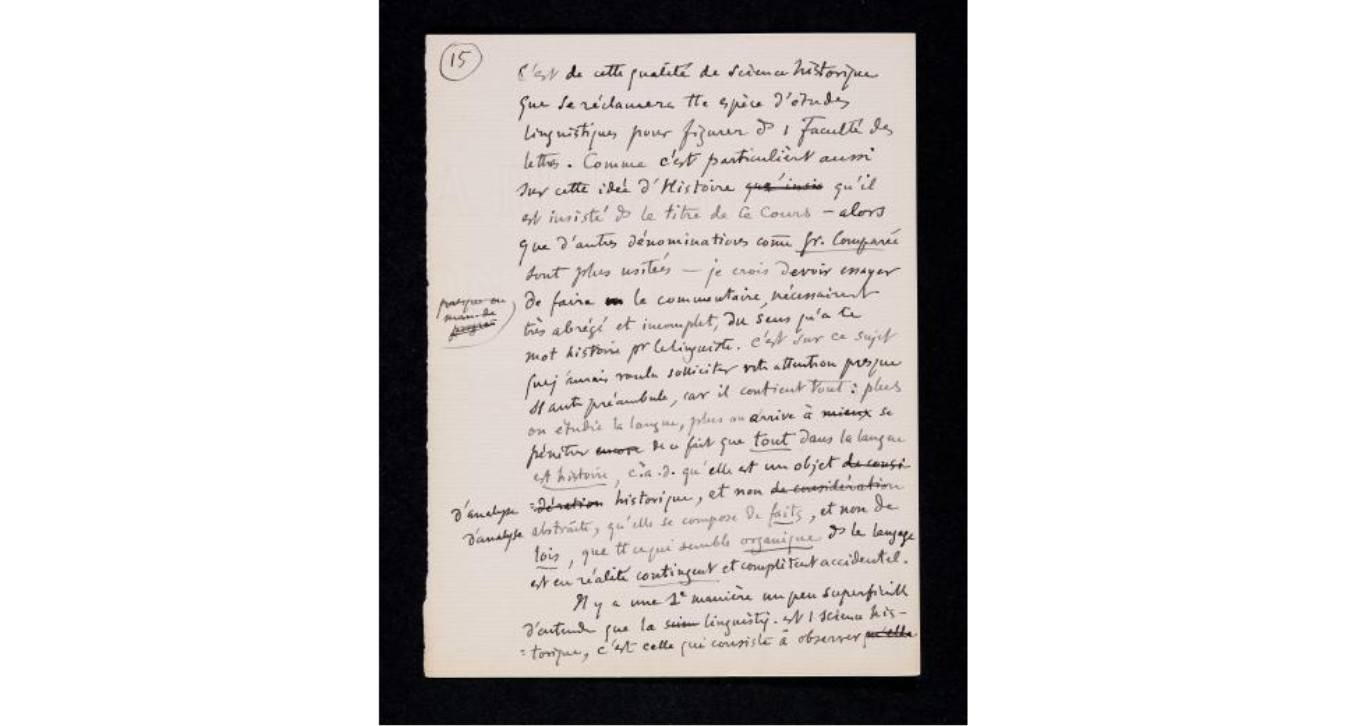 15
C'est de cette qualité de science historique
que se réclamera tte espèce d'études
linguistiques pour figurer ds 1 Faculté des
lettres. Comme c'est particulièrt aussi
sur cette idée d'Histoire qu'insis qu'il
est insisté ds le titre de ce Cours – alors
que d'autres dénominations come Gr. Comparée
sont plus usitées – je crois devoir essayer
de faire un le commentaire, nécessairent
très abrégé et incomplet, du sens qu'a ce
mot histoire pr le linguiste. C'est sur ce sujet
que j'aurais voulu solliciter votre attention presque
st autre préambule, car il contient tout : plus
on étudie la langue, plus on arrive à mieux se
pénétrer encore de ce fait que tout dans la langue
est histoire, c.à.d. qu'elle est un objet de consi-
d'analyse =dération historique, et non de considération
d'analyse abstraite, qu'elle se compose de faits, et non de
lois, que tt ce qui semble organique ds le langage
est en réalité contingent et complètent accidentel.
Il y a une 1e manière un peu superficielle
d'entendre que la scien linguistiq. est 1 science his-
=torique, c'est celle qui consiste à observer qu'elle